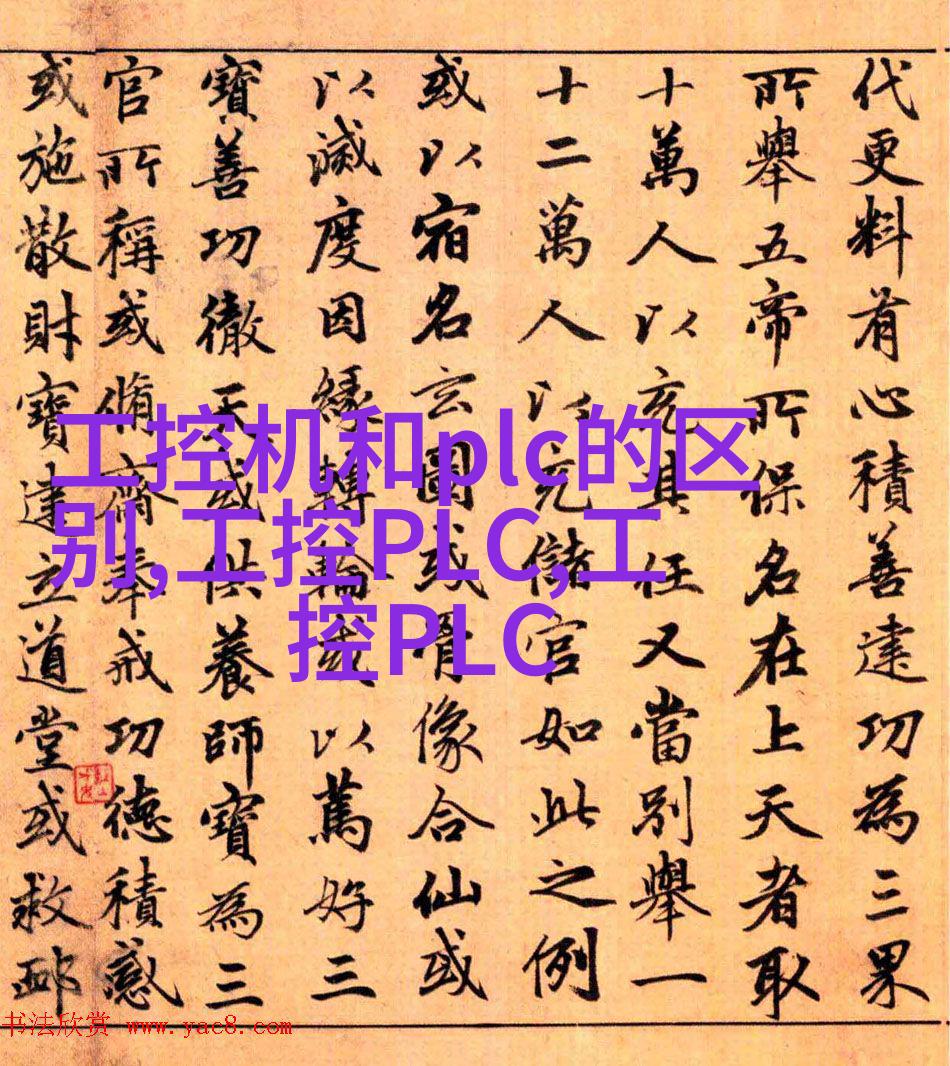 代更料有心積善建功為三果
所舉五帝所保名在上天者取
十萬人以充其任又當別舉一
十二萬人以充儲官如此之例
或以宿名玄圖或骨像合仙或
以滅度因緣轉輪或以篤好三
寶善功徹天或供養師寶為三
官所稱或脩齋奉戒功德積感
或施散財寶建立道堂或救
工控机和plc的区
别,工控PLC,工
控PLC
书法欣赏 www.yac8.com